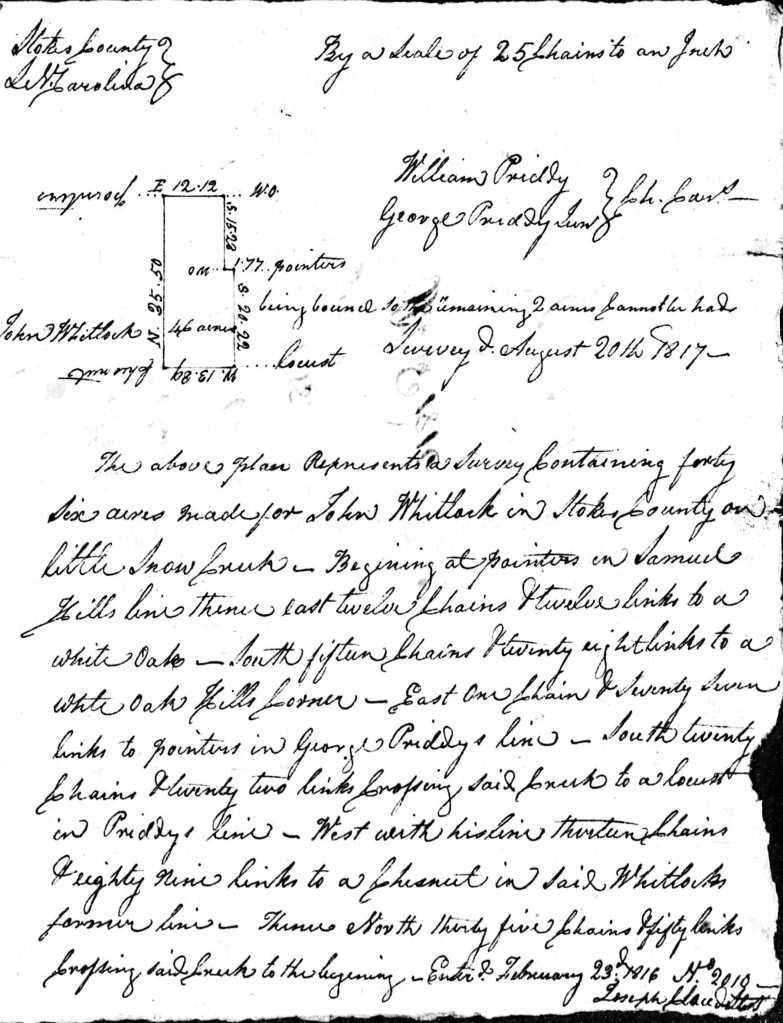 Stokes County
N. Carolina
By a Scale of 25 Chains to an Inch
William Priddy
George Priddy Junr
Ch. Carrs
pointers
E 12.12 W.O.
S. 15.28
W.O. 1.77 pointers
S. 20.22
N 35.50
being bound so the remaining 2 acres Cannot be had
John Whitlock
46 acres
Surveyd. August 20th 1817
Chesnut
W 13.89
locust
The above plan Represents a Survey Containing forty
Six acres made for John Whitlock in Stokes County on
little Snow Creek – Begining at pointers in Samuel
Hills line thence east twelve Chains & twelve links to a
white Oak – South fifteen Chains & twenty eight links to a
white Oak Hills Corner – East One Chain & Seventy Seven
links to pointers in George Priddys line – South twenty
Chains & twenty two links Crossing said Creek to a locust
in Priddys line – West with his line thirteen Chains
& eighty Nine links to a Chesnut in said Whitlocks
former line – Thence North thirty five Chains & fifty links
Crossing said Creek to the begening – Enterd. February 23d. 1816 No 2010 –
Joseph